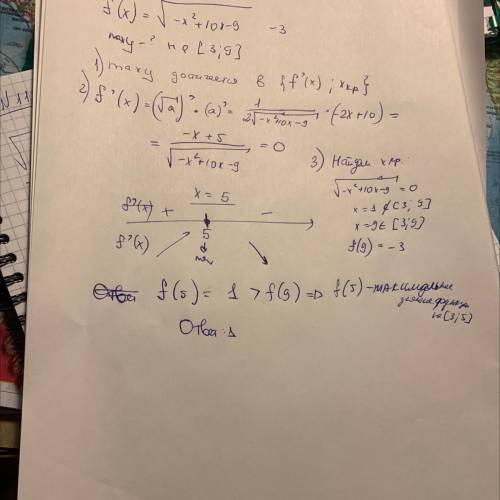 f'(x) = √-x²+10x-9 -3
max y - ? на [3; 9]
1) max y достигается в {f'(x); xкр}
2) f'(x) = (√a)' · (a)' = 1/2√-x²+10x-9 · (-2x+10) =
= -x+5/√-x²+10x-9 = 0
3) Найдём xкр:
√-x²+10x-9 = 0
x=1 ∉ [3; 9]
x=9 ∈ [3; 9]
f(9) = -3
x = 5
f'(x) + -
5
f'(x)
max
Ответ f(5) = 1 > f(9) => f(5) - максимальное
значение функции
на [3; 5]
Ответ: 1
N 11